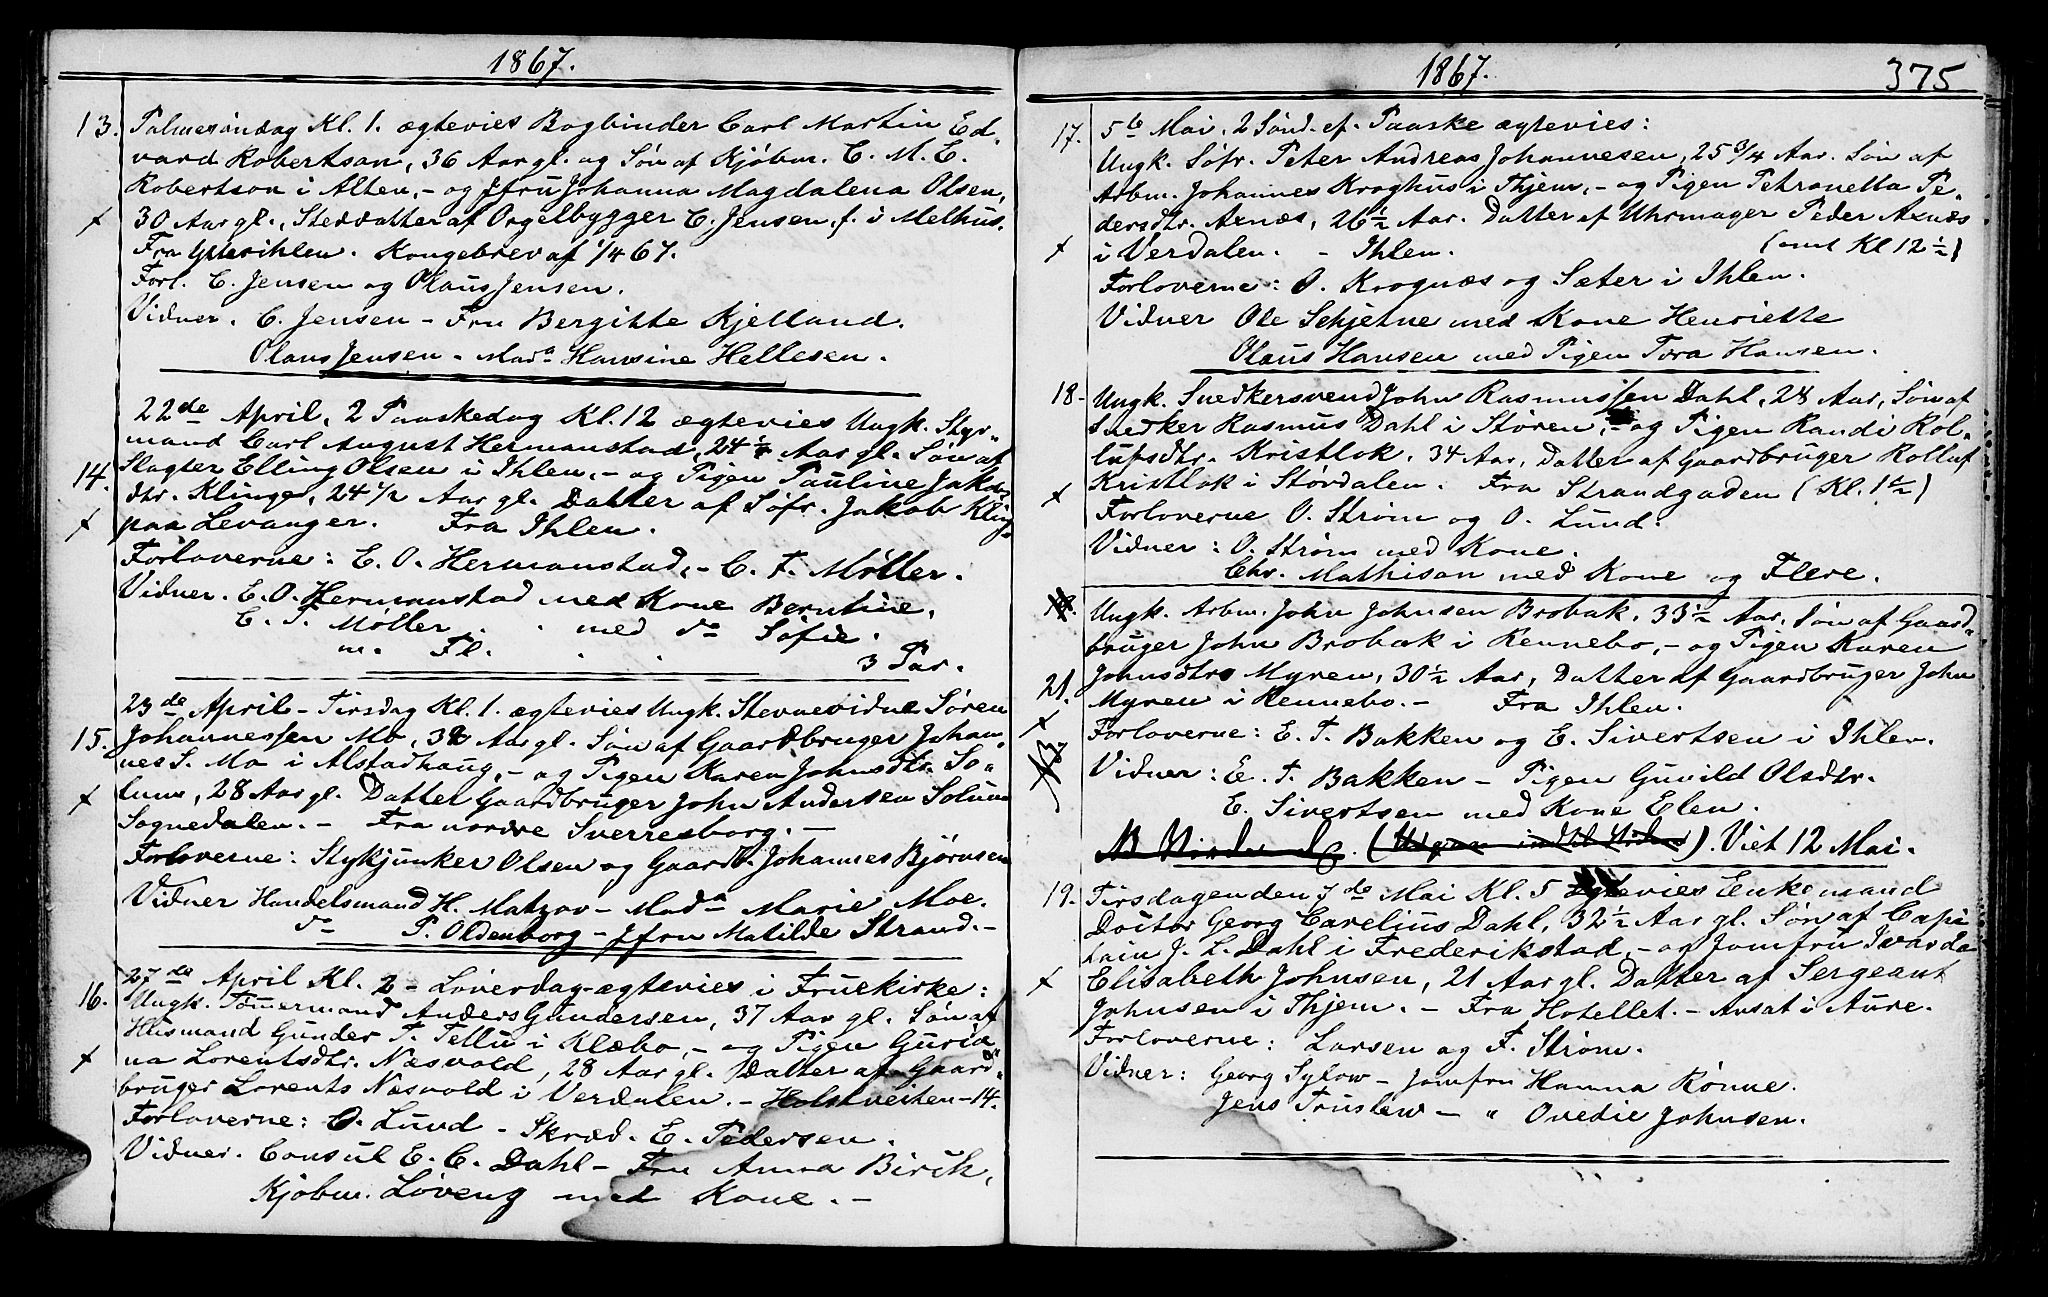 1867.
13. Palmesøndag Kl. 1. ægtevies Bogbinder Carl Martin Ed-
vard Robertson, 36 Aar gl. og Søn af Kjøbm. C. M. E.
Robertson i Alten, - og Jfru Johanna Magdalena Olsen,
30 Aar gl., Steddatter af Orgelbygger C. Jensen, f. i Melhus.
Fra Ytterihlen. Kongebrev af 1/4 67.
Forl. C. Jensen og Olaus Jensen.
Vidner. C. Jensen - Fru Bergitte Kjelland.
Olaus Jensen - Mada Hansine Hellesen.
22de April, 2 Paaskedag Kl. 12 ægtevies Ungk. Styr-
mand Carl August Hermanstad, 24 1/2 Aar gl. Søn af
14. Slagter Elling Olsen i Ihlen, - og Pigen Pauline Jakobs
dtr. Klinger, 24 1/2 Aar gl. Datter af Søfr. Jakob Kling
paa Levanger. Fra Ihlen.
Forloverne: E. O. Hermanstad, - C. F. Møller.
Vidner. E. O. Hermanstad med Kone Berntine.
C. F. Møller . . med do Sofie.
m. Fl. . . . 3 Par.
23de April - Tirsdag Kl. 1. ægtevies Ungk. Stevnevidne Søren
15. Johannessen Mo, Aar gl. Søn af Gaardbruger Johan-
nes S. Mo i Alstadhaug, - og Pigen Karen Johnsdtr. So-
lum, 28 Aar gl. Datter Gaardbruger John Andersen Solum
Sognedalen. - Fra nordre Sverresborg. -
Forloverne: Stykjunker Olsen og Gaardb. Johannes Bjørnsen
Vidner Handelsmand H. Matzov - Mada Marie Moe.
do P. Oldenborg - Jfru Matilde Strand. -
27de April Kl. 2 - Løverdag - ægtevies i Fruekirke:
16. Ungk. Tømermand Anders Gundersen, 37 Aar gl. Søn af
Husmand Gunder T. Tellu i Klæbo, - og Pigen Guria
na Lorentsdtr. Næsvold, 28 Aar gl. Datter af Gaard-
bruger Lorents Næsvold i Verdalen. - Holstveiten - 14.
Forloverne: O. Lund - Skræd. E. Pedersen.
Vidner. Consul E. C. Dahl - Fru Anna Birch,
Kjøbm. Løveng med Kone. -
1867. 375
17. 5te Mai. 2 Sønd. ef. Paaske ægtevies:
Ungk. Søfr. Peter Andreas Johannesen, 25 3/4 Aar. Søn af
Arbm. Johannes Kroghus i Thjem, - og Pigen Petronella Pe-
dersdtr. Axnæs, 26 1/2 Aar. Datter af Uhrmager Peder Axnæs
i Verdalen. - Ihlen. (omt Kl 12 1/2)
Forloverne: O. Krognæs og Sæter i Ihlen.
Vidner Ole Schjetne med Kone Henriette
Olaus Hansen med Pigen Tora Hansen.
18. Ungk. Snedkersvend John Rasmussen Dahl, 28 Aar, Søn af
Snedker Rasmus Dahl i Støren, - og Pigen Randi Rol-
lufsdtr. Kristlok, 34 Aar, Datter af Gaardbruger Rolluf
Kristlok i Størdalen. Fra Strandgaden (Kl. 1 1/2)
Forloverne O. Strøm og O. Lund.
Vidner: O. Strøm med Kone.
Chr. Mathisan med Kone og Flere.
Ungk. Arbm. John Johnsen Brobak, 33 1/2 Aar. Søn af Gaard-
bruger John Brobak i Rennebo, - og Pigen Karen
21. Johnsdtr. Myren, 30 1/2 Aar, Datter af Gaardbruger John
Myren i Rennebo. - Fra Ihlen.
Forloverne: E. T. Bakken og E. Sivertsen i Ihlen.
Vidner: E. T. Bakken - Pigen Gunild Olsdtr.
E. Sivertsen med Kone Elen.
Viet 12 Mai.
19. Tirsdagen den 7de Mai Kl. 5 ægtevies Enkemand
Doctor Georg Carelius Dahl, 32 1/2 Aar gl. Søn af Capi
tain J. L. Dahl i Frederikstad, - og Jomfru Ivarda
Elisabeth Johnsen, 21 Aar gl. Datter af Sergeant
Johnsen i Thjem. - Fra Hotellet. - Ansat i Aure.
Forloverne: Larsen og F. Strøm.
Vidner: Georg Sylow - Jomfru Hanna Rønne.
Jens Truslew - " Ovedie Johnsen.